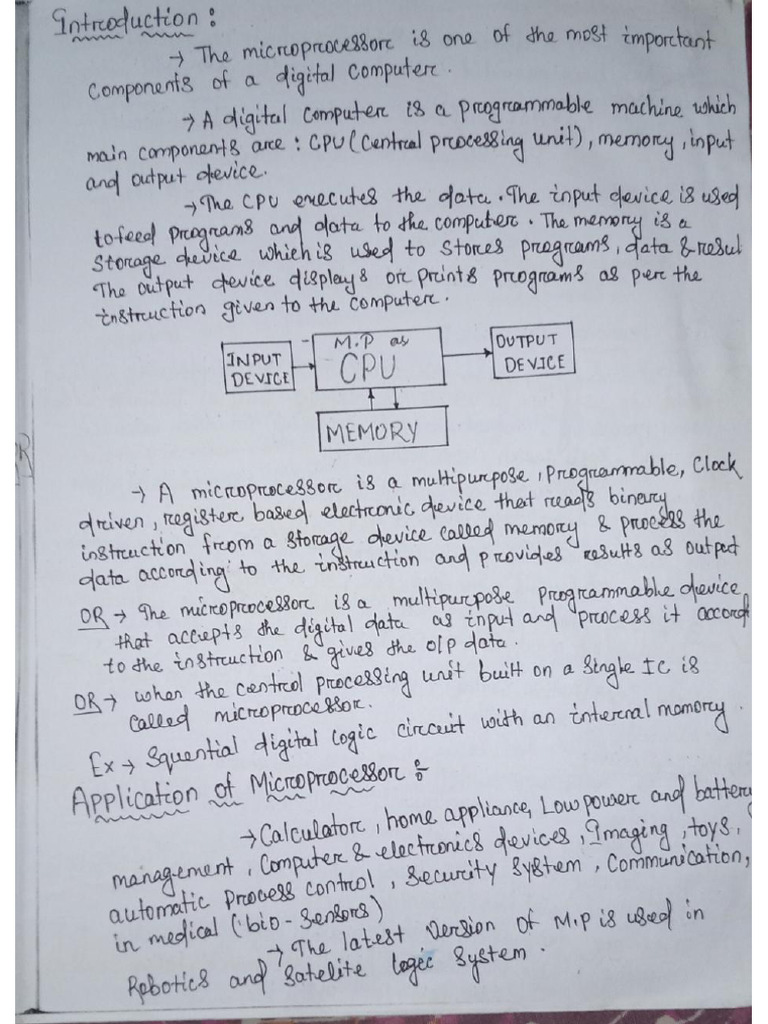 Introduction :
→ The microprocessor is one of the most important
components of a digital computer.
→ A digital computer is a programmable machine which
main components are : CPU (Central processing unit), memory, input
and output device.
→ The CPU executes the data. The input device is used
to feed programs and data to the computer. The memory is a
Storage device which is used to stores programs, data & resul
The output device displays or prints programs as per the
instruction given to the computer.
INPUT
DEVICE
M.P as
CPU
OUTPUT
DEVICE
MEMORY
→ A microprocessor is a multipurpose, Programmable, Clock
driven, register based electronic device that reads binary
instruction from a storage device called memory & process the
data according to the instruction and provides results as output
OR → The microprocessor is a multipurpose programmable device
that accepts the digital data as input and process it accord
to the instruction & gives the o/p data.
OR → when the central processing unit built on a single IC is
called microprocessor.
Ex → Squential digital logic circuit with an internal memory.
Application of Microprocessor :
→ Calculator, home appliance, Low power and battery
management, Computer & electronics devices, Imaging, toys,
automatic process control, Security System, Communication,
in medical (bio-Sensors)
→ The latest version of M.P is used in
Robotics and Satelite logic System.